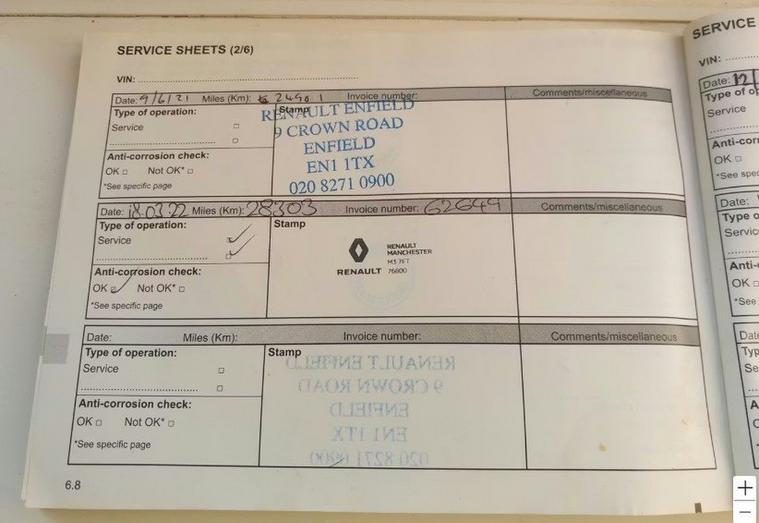 SERVICE SHEETS (2/6)
VIN:
Date: 9/6/21 Miles (Km): Invoice number: Comments/miscellaneous
Type of operation:
Service
Anti-corrosion check:
OK Not OK*
*See specific page
Stamp
RENAULT ENFIELD
9 CROWN ROAD
ENFIELD
EN1 1TX
020 8271 0900
Date: 18.03.22 Miles (Km): 28303 Invoice number: 62649 Comments/miscellaneous
Type of operation:
Service
Anti-corrosion check:
OK Not OK*
*See specific page
Stamp
RENAULT
MANCHESTER
M3 7FT
RENAULT 76800
Date: Miles (Km): Invoice number: Comments/miscellaneous
Type of operation:
Service
Anti-corrosion check:
OK Not OK*
*See specific page
Stamp
RENAULT ENFIELD
9 CROWN ROAD
ENFIELD
EN1 1TX
020 8271 0900
6.8
SERVICE
VIN:
Date: 12/
Type of op
Service
Anti-corr
OK
*See spec
Date:
Type o
Servic
Anti-
OK
*See
Date
Typ
Se
A